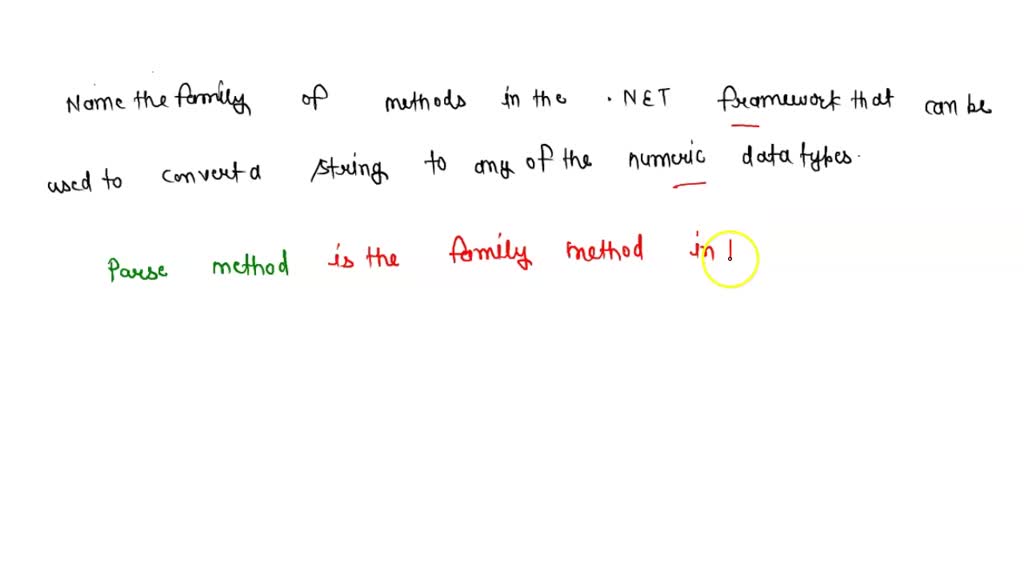 Name the family of methods in the .NET framework that can be
used to convert a string to any of the numeric data types.
Parse method is the family method in